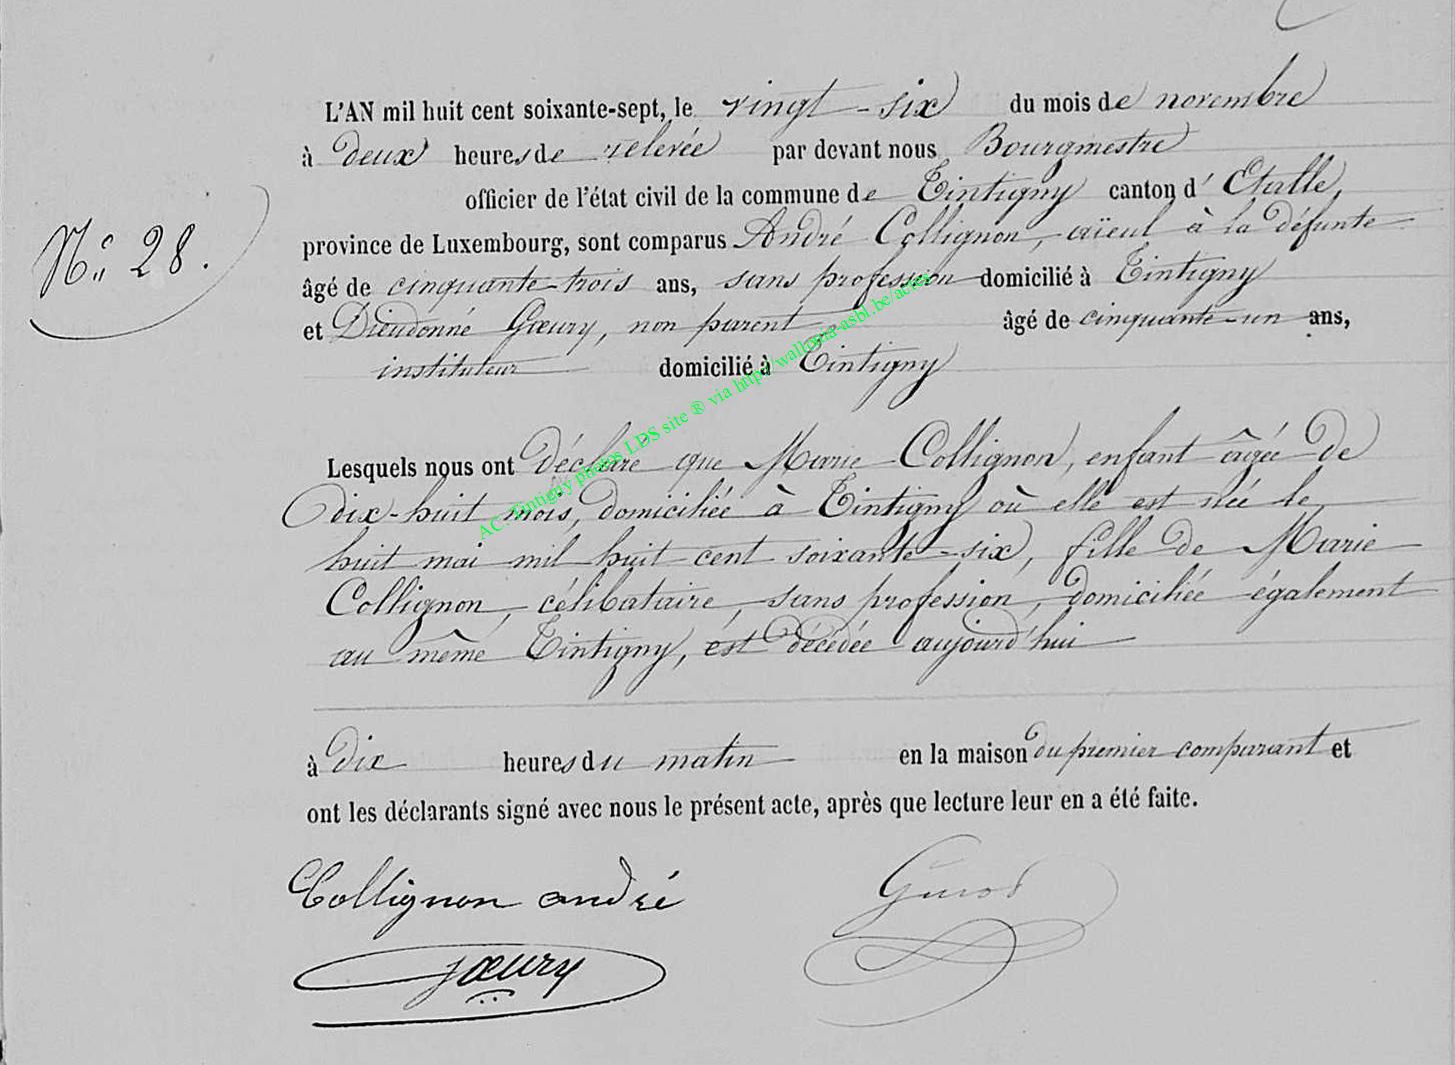 L'AN mil huit cent soixante-sept, le vingt-six du mois de novembre
à deux heures de relevée par devant nous Bourgmestre
officier de l'état civil de la commune de Tintigny canton d' Etalle,
N° 28.
province de Luxembourg, sont comparus André Collignon, aïeul à la défunte
âgé de cinquante-trois ans, sans profession domicilié à Tintigny
et Dieudonné Gœury, non parent âgé de cinquante-un ans,
instituteur domicilié à Tintigny
AC. Tintigny photos LDS site ® via http://wallonia-asbl.be/actes
Lesquels nous ont déclaré que Marie Collignon, enfant âgée de
dix-huit mois, domiciliée à Tintigny où elle est née le
huit mai mil huit cent soixante-six, fille de Marie
Collignon, célibataire, sans profession, domiciliée également
au même Tintigny, est décédée aujourd'hui
à dix heures du matin en la maison du premier comparant et
ont les déclarants signé avec nous le présent acte, après que lecture leur en a été faite.
Collignon andré
Gœury